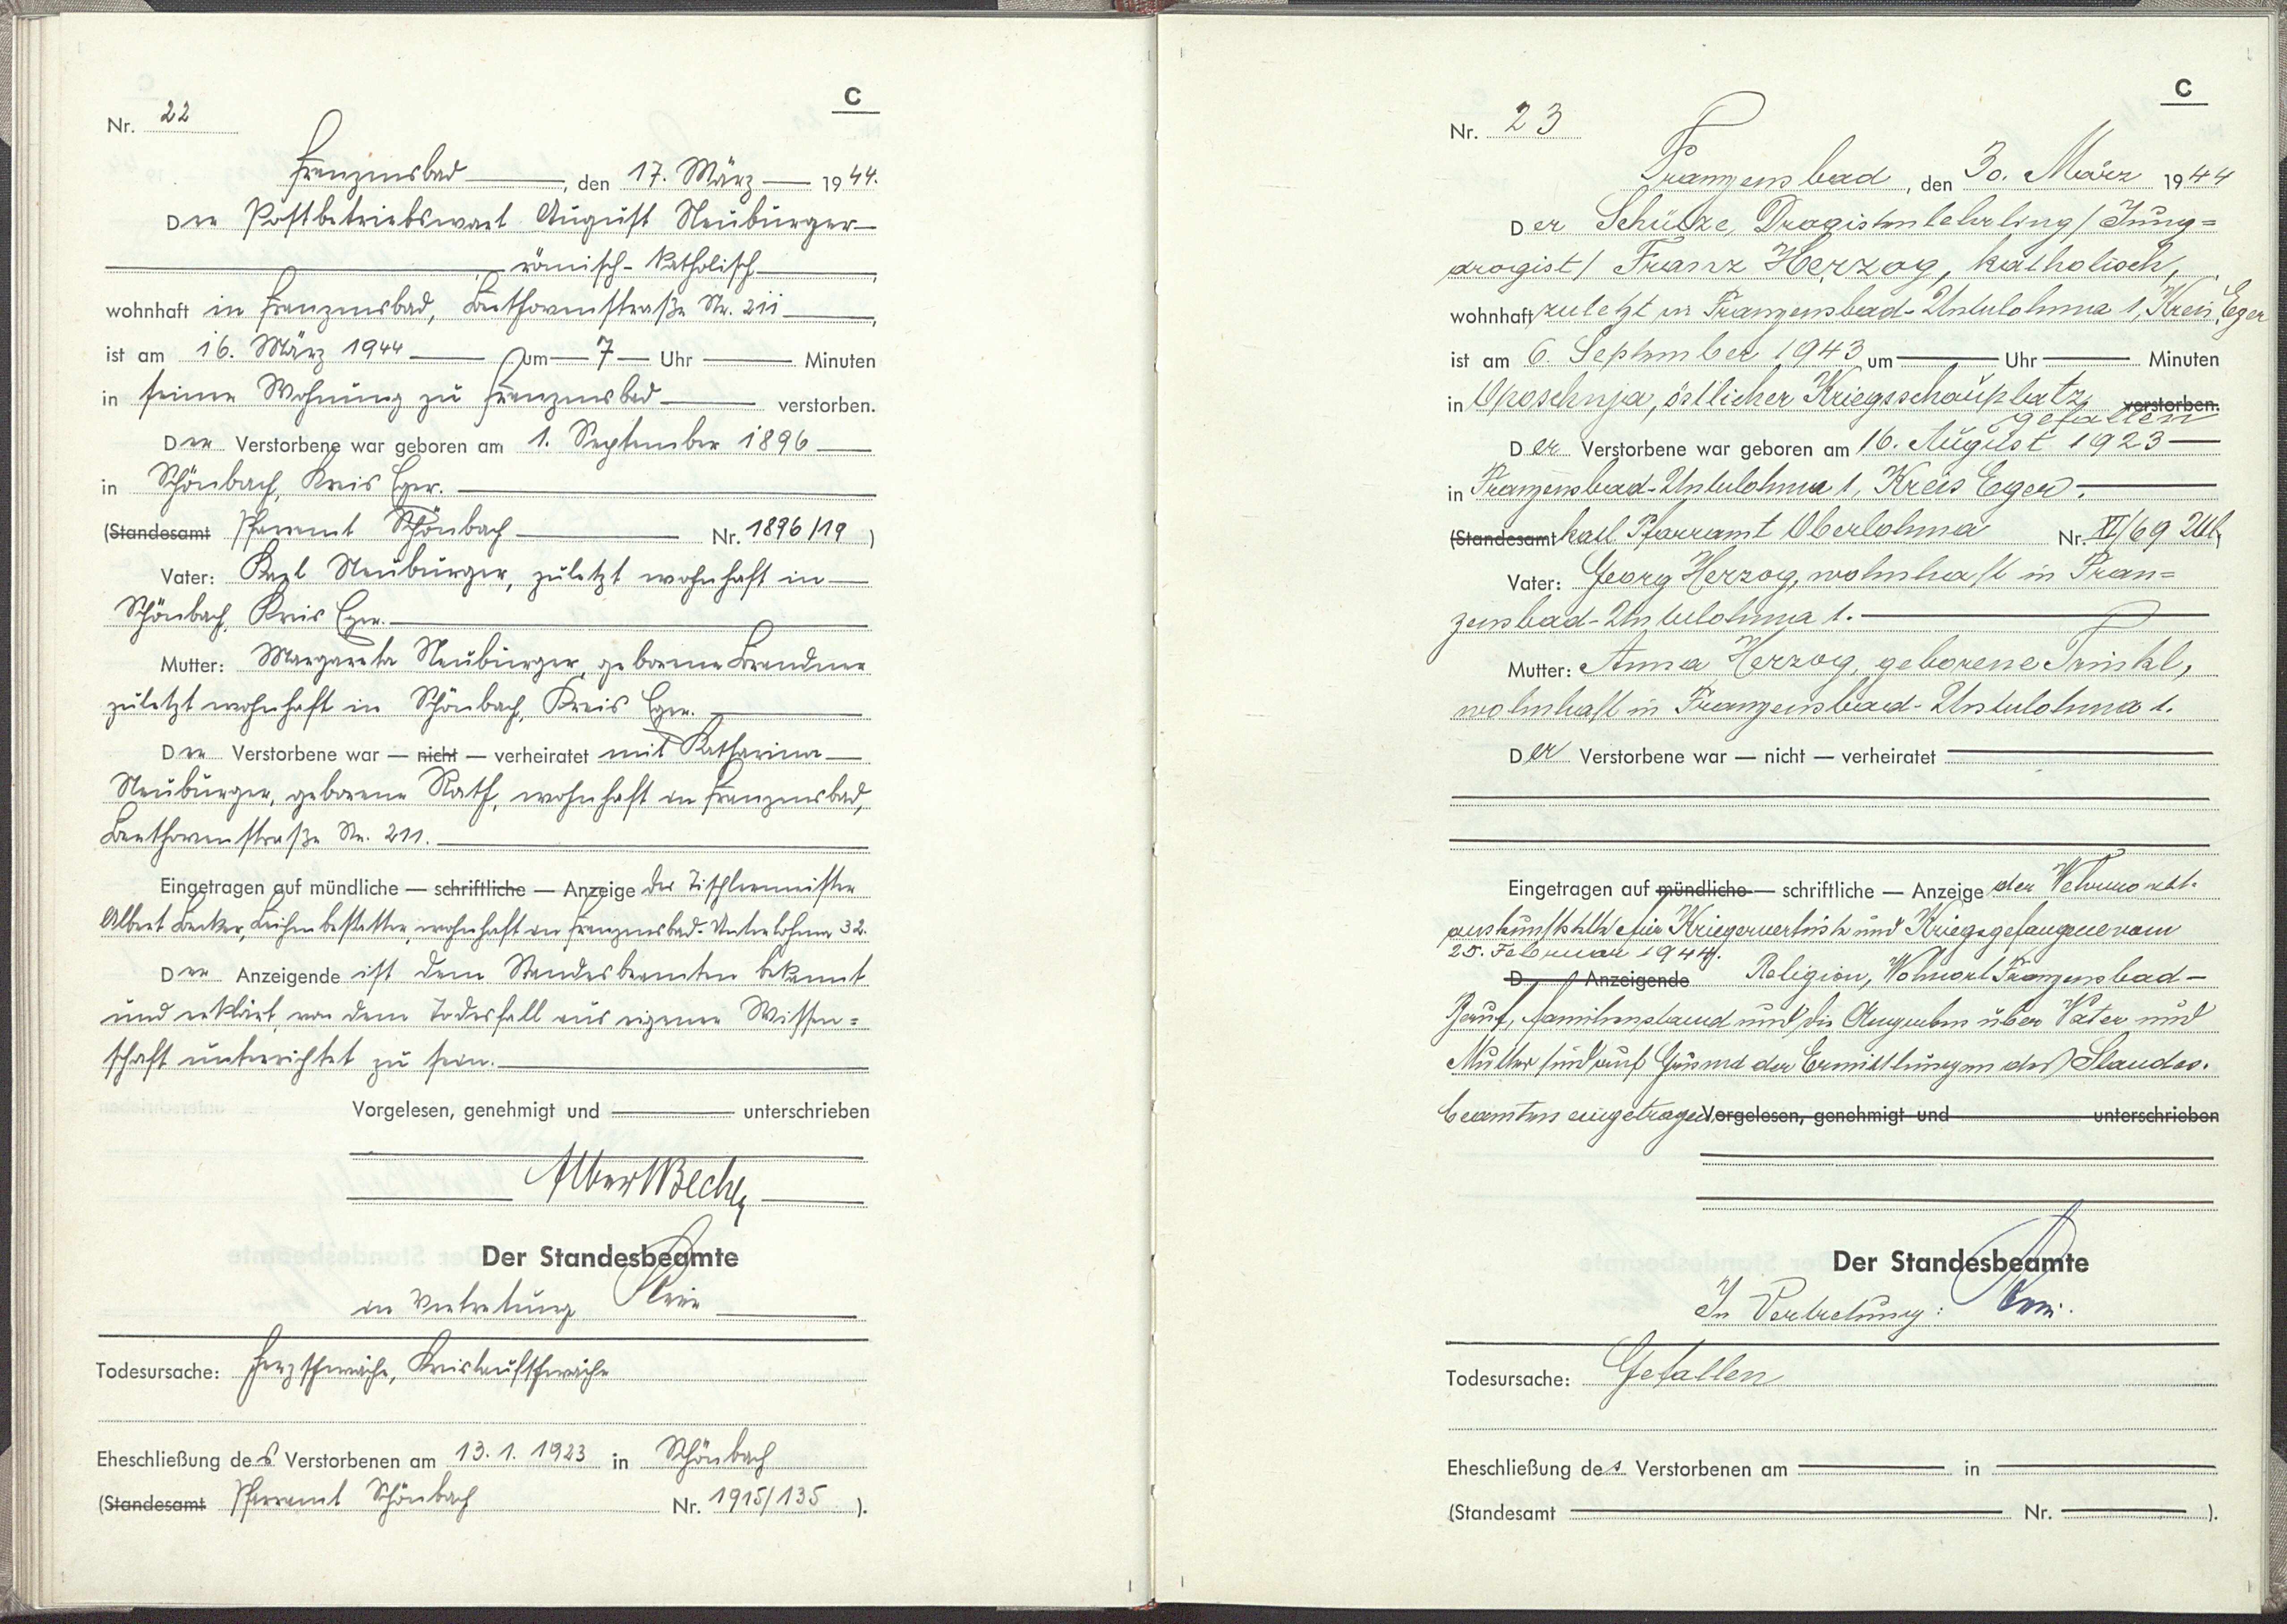 C
Nr. 22
Franzensbad, den 17. März 1944.
Der Postbetriebswart August Neubürger
römisch-katholisch,
wohnhaft in Franzensbad, Beethovenstraße Nr. 211,
ist am 16. März 1944 um 7 Uhr Minuten
in seiner Wohnung zu Franzensbad verstorben.
Der Verstorbene war geboren am 1. September 1896
in Schönbach, Kreis Eger.
(Standesamt Pfarramt Schönbach Nr. 1896/19)
Vater: Karl Neubürger, zuletzt wohnhaft in
Schönbach, Kreis Eger.
Mutter: Margareta Neubürger, geborene Brandner
zuletzt wohnhaft in Schönbach, Kreis Eger.
Der Verstorbene war — nicht — verheiratet mit Katharina
Neubürger, geborene Rath, wohnhaft in Franzensbad,
Beethovenstraße Nr. 211.
Eingetragen auf mündliche — schriftliche — Anzeige des Tischlermeister
Albert Becker, Leichenbestatter, wohnhaft in Franzensbad-Unterlohma 32.
Der Anzeigende ist dem Standesbeamten bekannt
und erklärt, von dem Todesfall aus eigener Wissen=
schaft unterrichtet zu sein.
Vorgelesen, genehmigt und unterschrieben
Albert Becker
Der Standesbeamte
in Vertretung
Todesursache: Herzschwäche, Kreislaufschwäche
Eheschließung des Verstorbenen am 13. 1. 1923 in Schönbach
(Standesamt Pfarramt Schönbach Nr. 1915/135).
C
Nr. 23
Franzensbad, den 30. März 1944
Der Schütze, Drogistenlehrling / Jung=
drogist / Franz Herzog, katholisch,
wohnhaft zuletzt in Franzensbad-Unterlohma 1, Kreis Eger
ist am 6. September 1943 um Uhr Minuten
in Oposchnja, östlicher Kriegsschauplatz verstorben.
gefallen
Der Verstorbene war geboren am 16. August 1923
in Franzensbad-Unterlohma 1, Kreis Eger.
(Standesamt kath Pfarramt Oberlohma Nr. XI/69 Utl.)
Vater: Georg Herzog, wohnhaft in Fran=
zensbad-Unterlohma 1.
Mutter: Anna Herzog, geborene Trinkl,
wohnhaft in Franzensbad-Unterlohma 1.
Der Verstorbene war — nicht — verheiratet
Eingetragen auf mündliche — schriftliche — Anzeige der Wehrmacht-
auskunftstelle für Kriegerverluste und Kriegsgefangene vom
25. Februar 1944.
D Anzeigende Religion, Wohnort Franzensbad-
Beruf, Familienstand und die Angaben über Vater und
Mutter sind auf Grund der Ermittlungen des Standes-
beamten eingetragen. Vorgelesen, genehmigt und unterschrieben
Der Standesbeamte
In Vertretung:
Todesursache: Gefallen
Eheschließung des Verstorbenen am in
(Standesamt Nr. ).